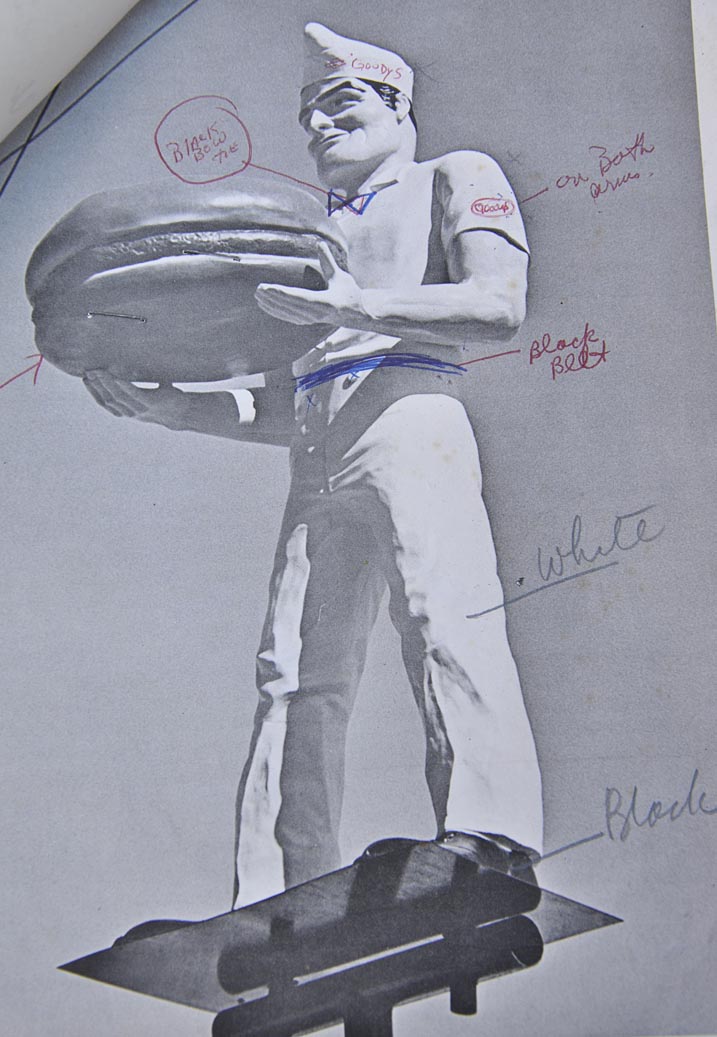 Goodys
Black
Bow
Tie
on Both
arms.
Goodys
Black
Belt
White
Black